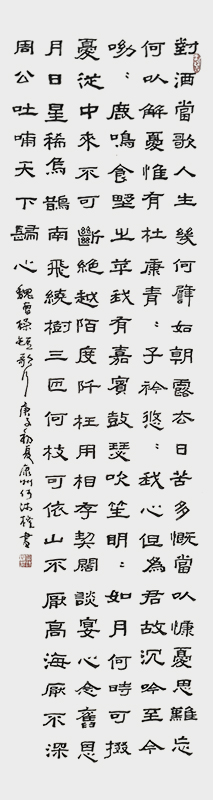 對酒當歌人生幾何譬如朝露去日苦多慨當以慷憂思難忘
何以解憂惟有杜康青〻子衿悠〻我心但為君故沉吟至今
呦〻鹿鳴食野之苹我有嘉賓鼓瑟吹笙明〻如月何時可掇
憂從中來不可斷絕越陌度阡枉用相存契闊談宴心念舊恩
月日星稀烏鵲南飛繞樹三匝何枝可依山不厭高海厭不深
周公吐哺天下歸心 魏曹操短歌行 庚子初夏康州何沛權書